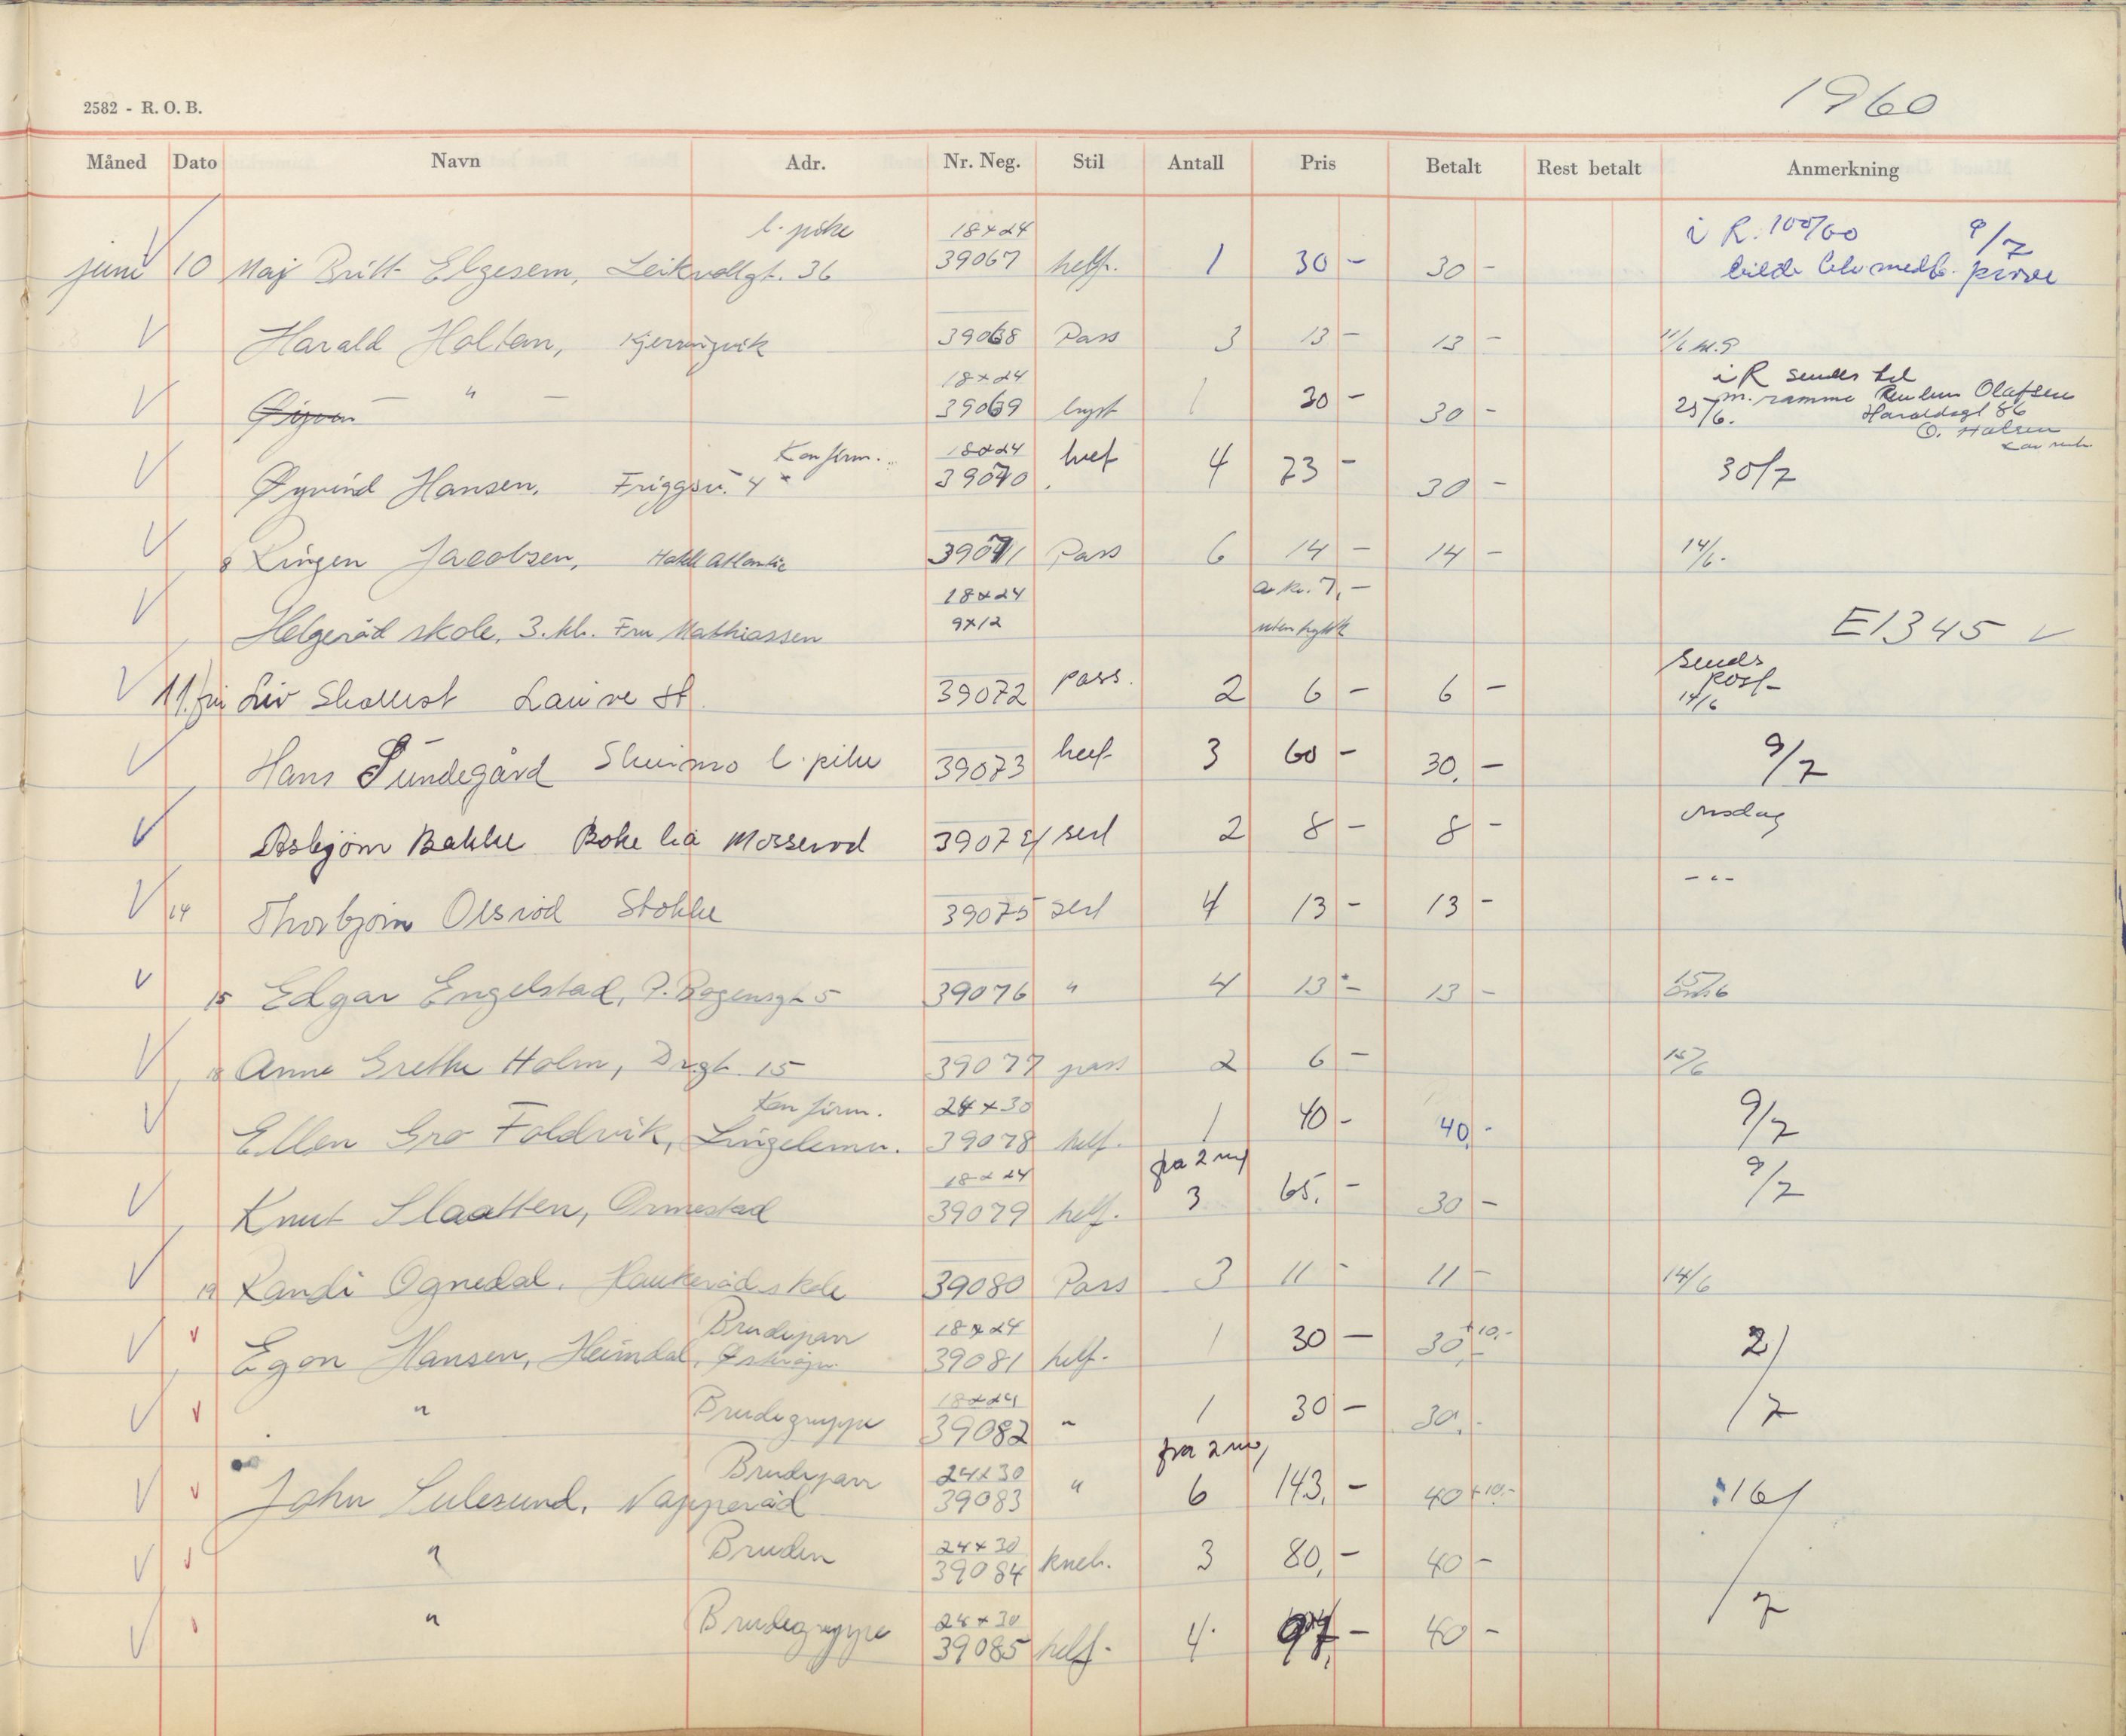 2582 - R. O. B.
1960
Måned Dato Navn Adr. Nr. Neg. Stil Antall Pris Betalt Rest betalt Anmerkning
l. pike 18x24 i R. 100/60 9/7
juni 10 Maj Britt Elgesem, Leikvollgt. 36 39067 helf. 1 30 - 30 - prøve
Harald Holtan, 39068 Pass 3 13 - 13 - 11/6
18x24 i R sendes til
" 39069 1 30 - 30 - 25/6. m. ramme Olafsen
Haraldsgt 86
Konfirm. 18x24
Øyvind Hansen, Friggsv. 4 39070 helf 4 73 - 30 - 30/7
8 Ringen Jacobsen, Hotell Atlantic 39071 Pass 6 14 - 14 - 14/6.
18x24 a kr. 7, -
Helgeröd skole, 3. kl. Fru Mathiassen 9x12 E1345 ✓
11. Liv 39072 pass. 2 6 - 6 - sendes post 14/6
Hans Sundegård l. pike 39073 helf 3 60 - 30. - 9/7
Asbjørn Bakke Bøkelia Mosserød 39074 2 8 - 8 - onsdag
14 Thorbjørn Olsröd Stokke 39075 4 13 - 13 - - " -
15 Edgar Engelstad, P. Bogensgt 5 39076 " 4 13 - 13 -
18 Anne Grethe Holm, Drgt. 15 39077 pass 2 6 - 15/6
Konfirm. 24x30
Ellen Gro Foldvik, Lingelemv. 39078 helf. 1 40 - 40, - 9/7
18x24 fra 2 neg
Knut Slaatten, Ormestad 39079 helf. 3 65, - 30 - 9/7
19 Randi Ognedal, Haukeröd skole 39080 Pass 3 11 - 11 - 14/6
Brudepar 18x24 + 10,-
Egon Hansen, Heimdal, 39081 helf. 1 30 - 30 2/
" Brudegruppe 18x24 39082 " 1 30 - 30, - /7
Brudepar 24x30 fra 2 neg
John Sulesund, Napperöd 39083 " 6 143, - 40 + 10,- 16/
" Bruden 24x30 39084 kneb. 3 80, - 40 -
" Brudegruppe 24x30 39085 helf. 4 97, - 40 - /7